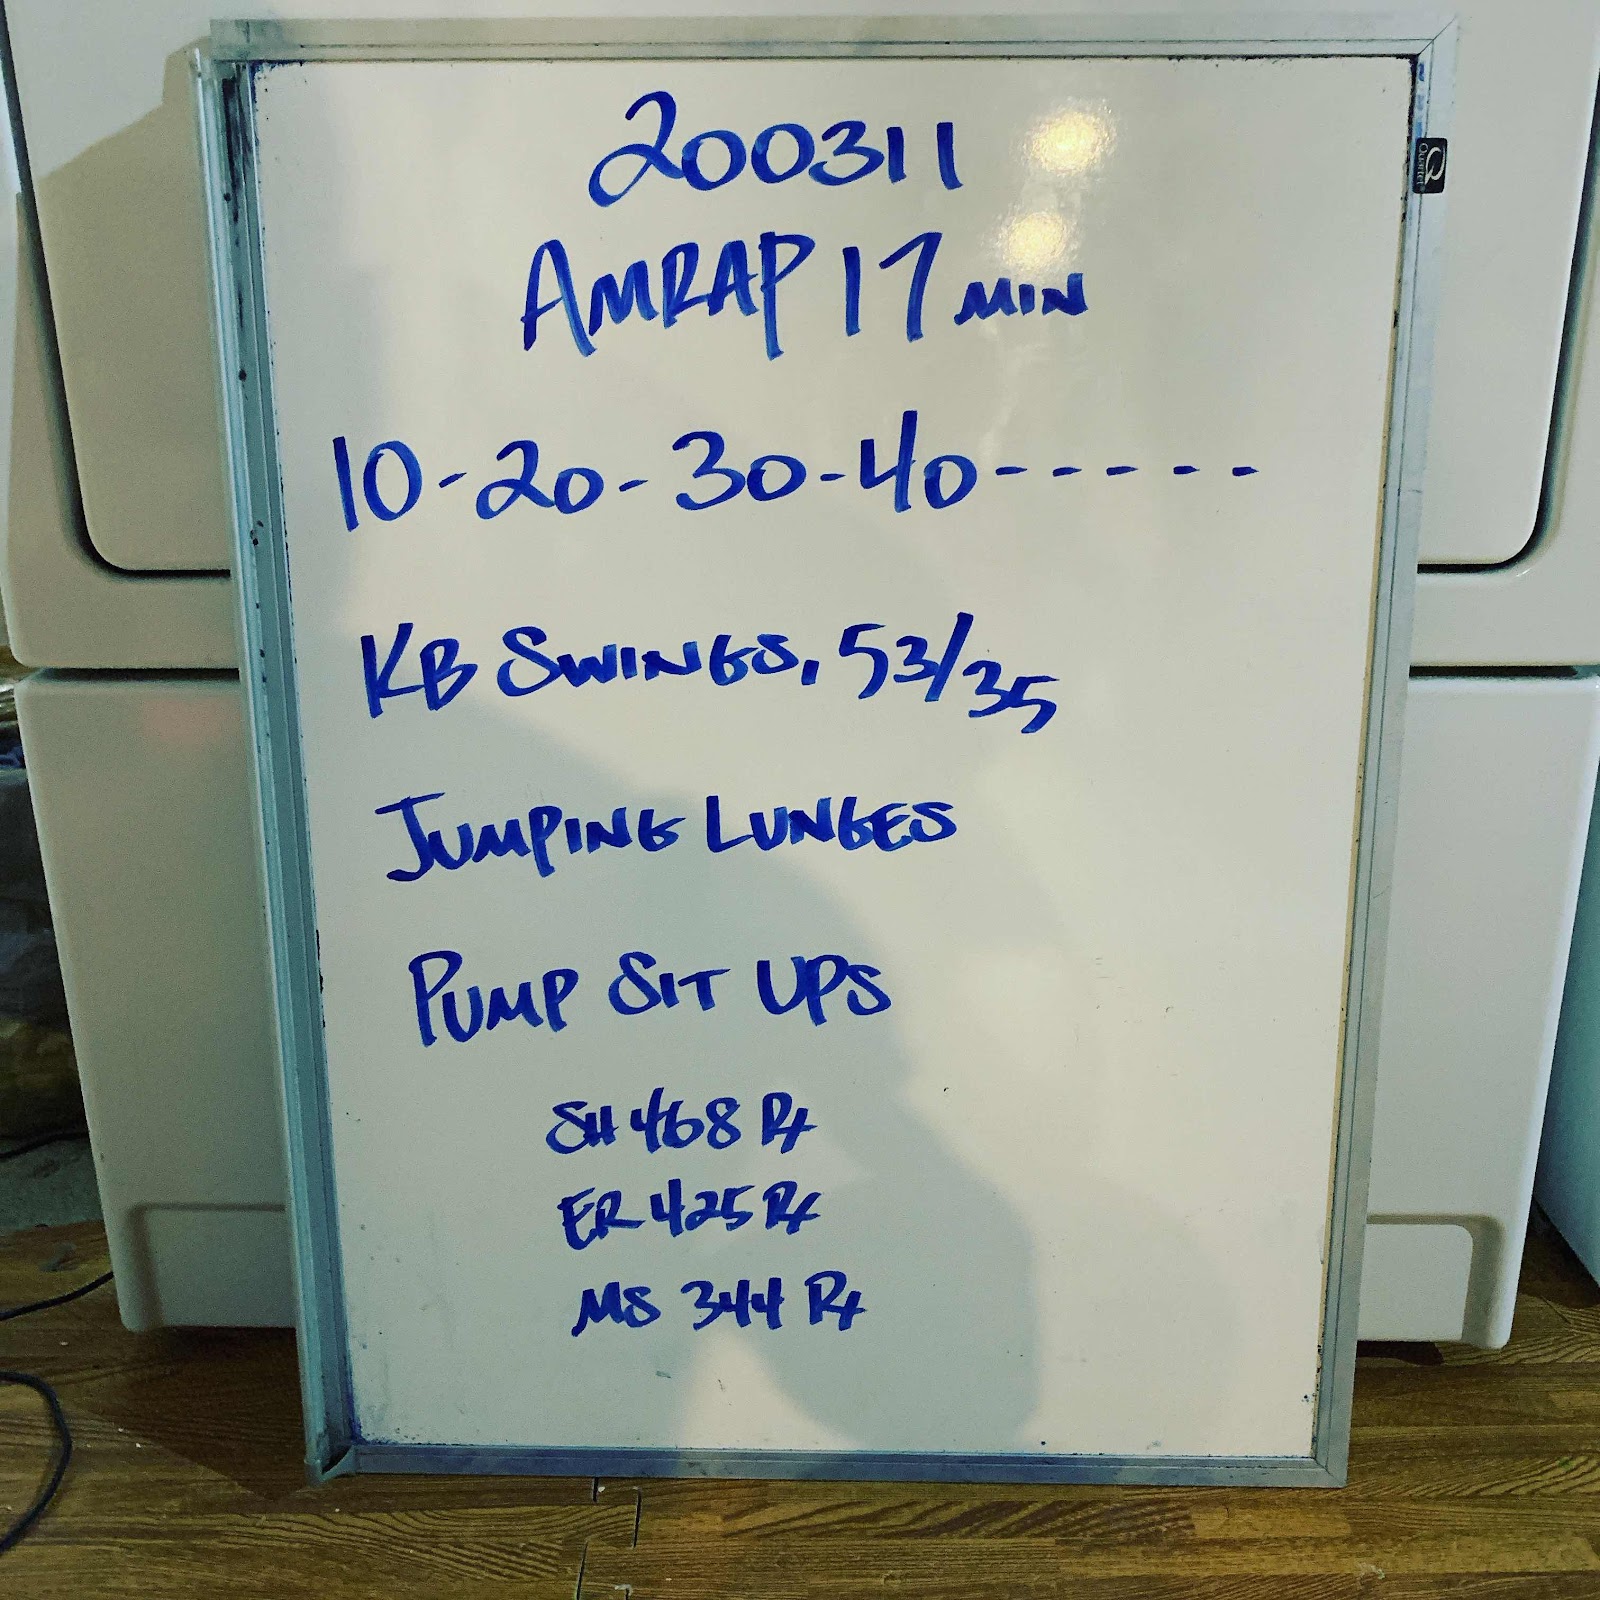 200311
AMRAP 17 MIN
10-20-30-40-----
KB SWINGS, 53/35
JUMPING LUNGES
PUMP SIT UPS
SH 468 Rx
ER 425 Rx
MS 344 Rx
Quartet